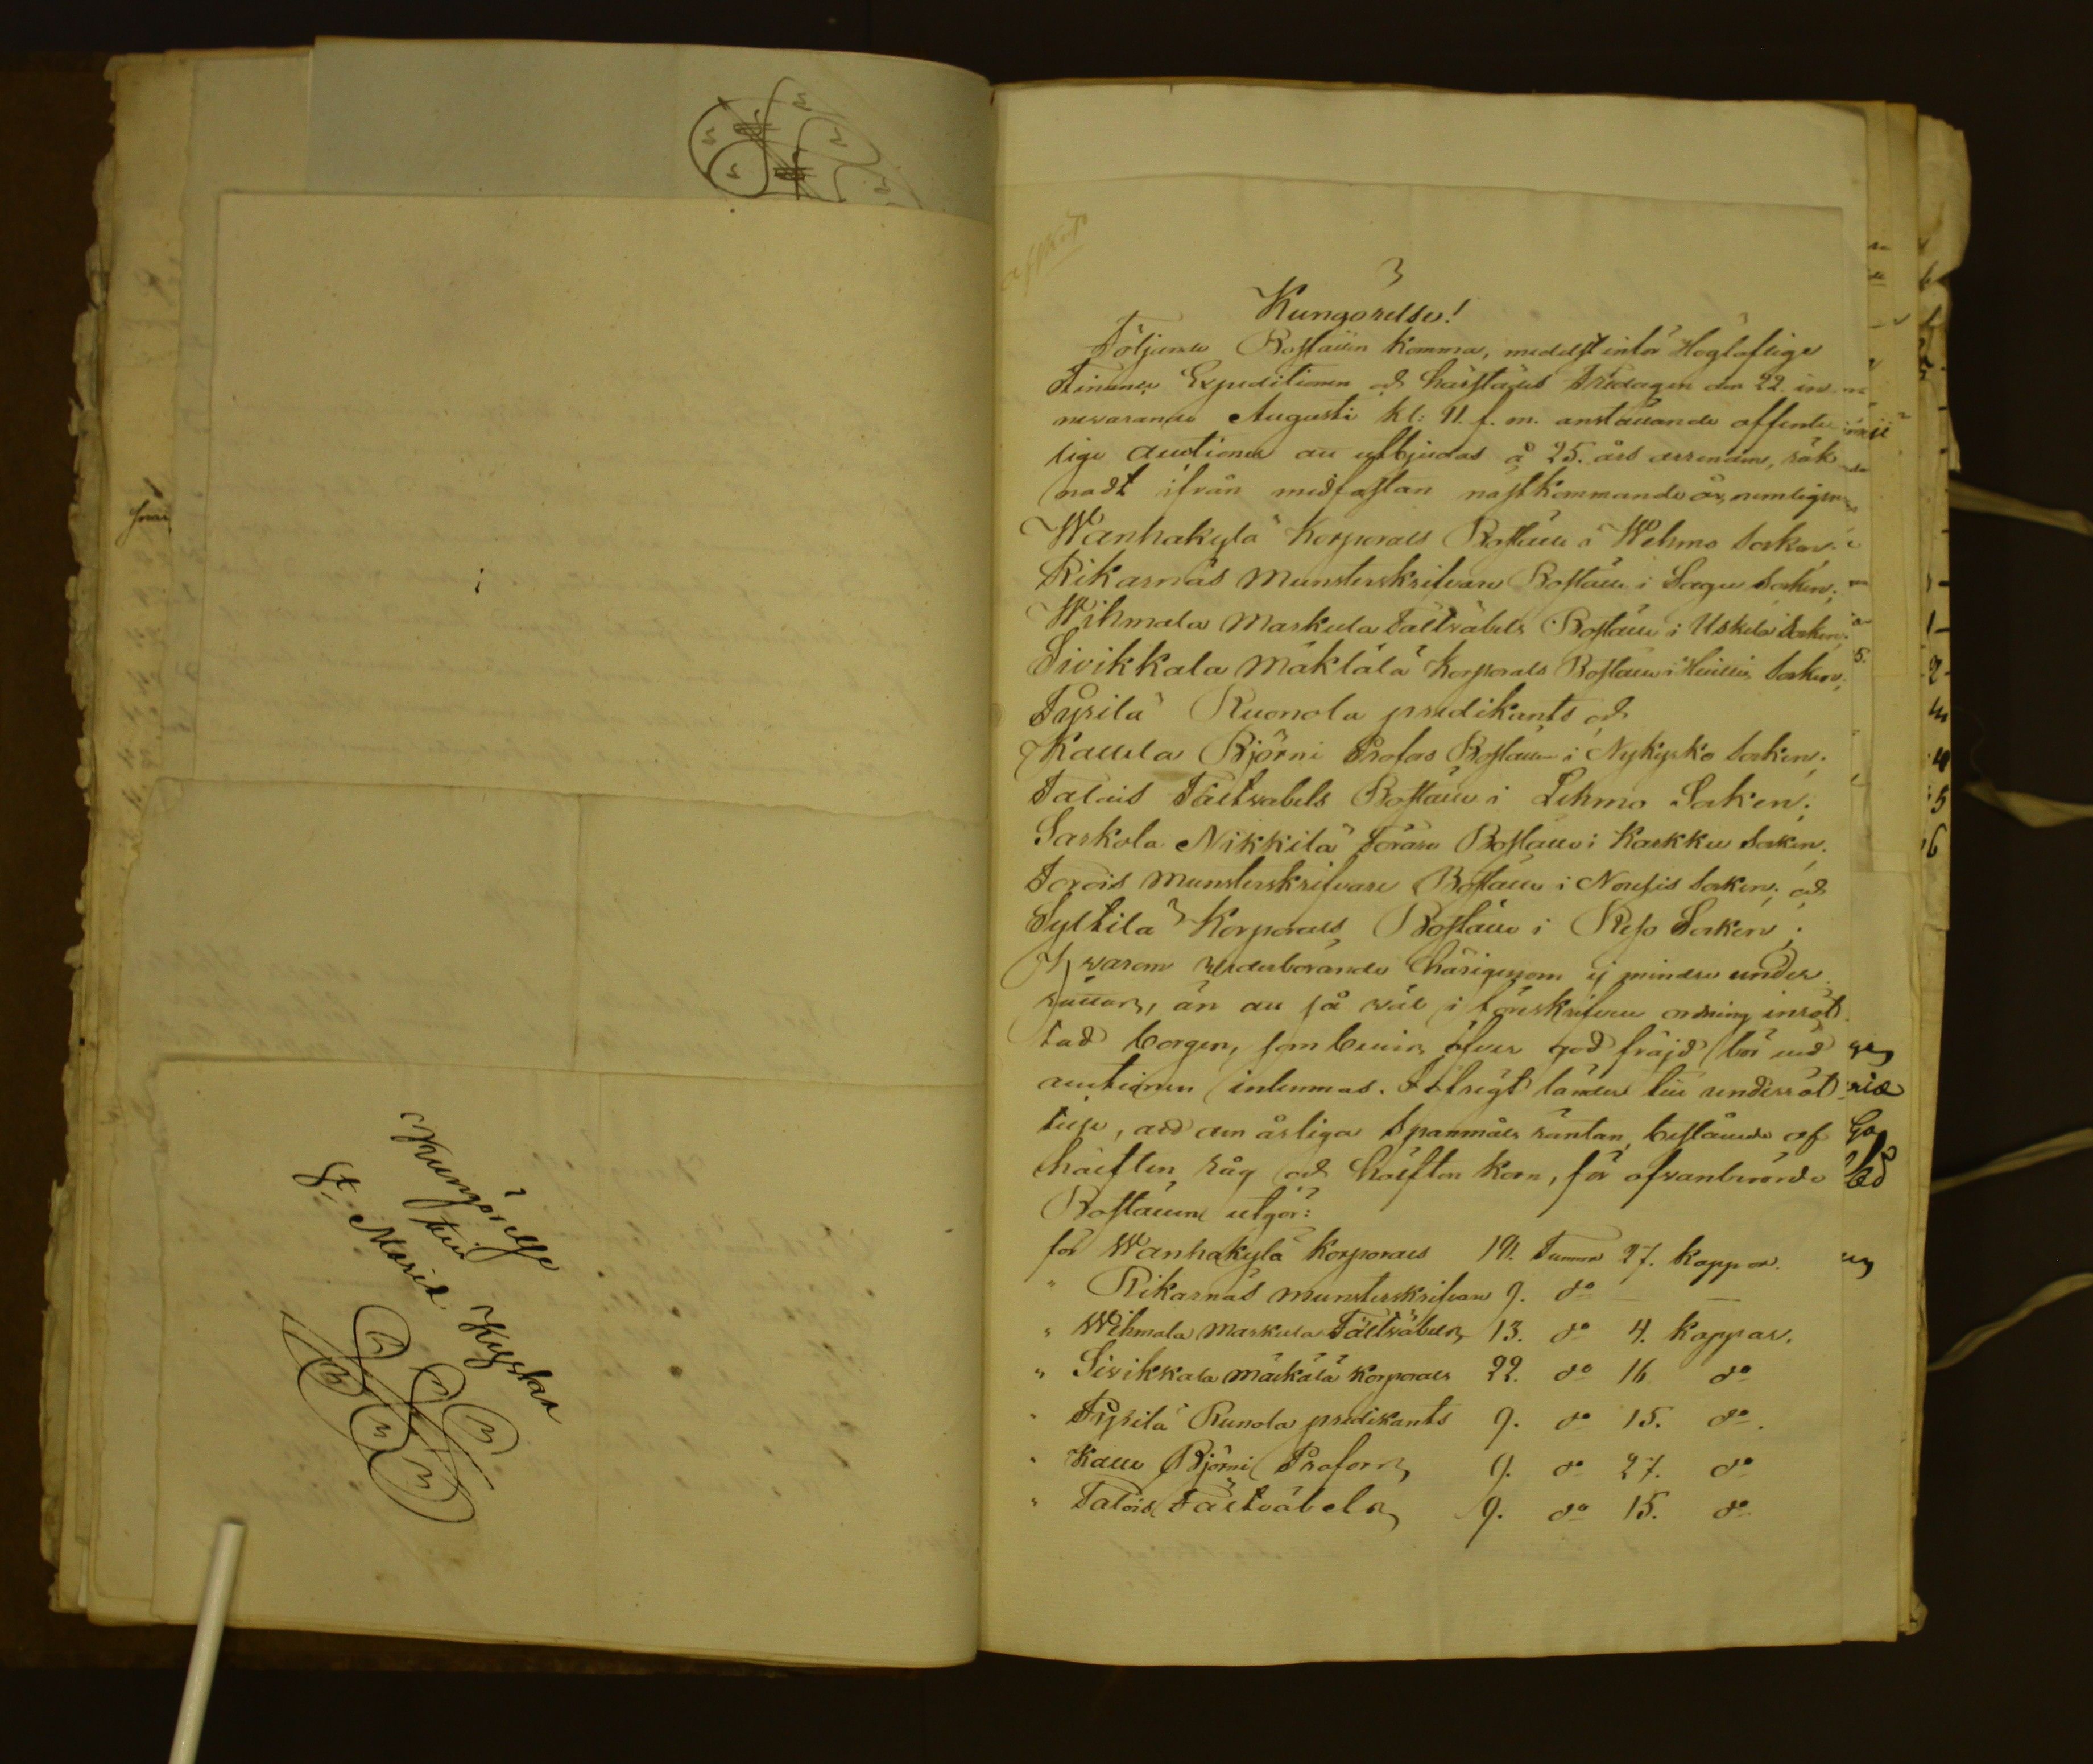 Kungörelse
till
St Marië Kyrka
Kungörelse!
Följande Boställen komma, medelst inför Höglofliga
Finance Expeditionen och härstädes Fredagen den 22 in
nevarande Augusti kl: 11. f. m. anställande offente
lige auctioner att utbjudas å 25. års arrenden, räk
nadt ifrån midfastan nästkommande år, nemligen
Wanhakylä Korporals Boställe i Wehmo Socken.
Rikarnäs Munsterskrifvare Boställe i Sagu Socken;
Wihmala Markula Fältväbels Boställe i Uskela Socken.
Sivikkala Mäkkälä Korporals Boställe i Socken;
Pyrilä Ruonola predikants och
Kauela Björni Profos Boställe i Nykyrko Socken.
Talois Fältväbels Boställe i Lehmo Socken;
Sarkola Nikkilä Förare Boställe i Karkku Socken.
Torois Munsterskrifvare Boställe i Nousis Socken; och
Syltilä Korporals Boställe i Reso Socken;
Hvarom vederbörande härigenom ej mindre under
rättas, än att så väl i föreskrifven ordning inrät
tad borgen, som bevis öfver god fräjd bör vid
auctionen inlemnas. I öfrigt länder till underrät
telse, att den årliga Spanmåls räntan, bestående af
hälften råg och hälften korn, för ofvanberörde
Boställen utgör:
för Wanhakylä Korporals 19. Tunnor 27. kappar.
" Rikarnäs Munsterskrifvare 9. do — —
" Wihmala Markula Fältväbels 13. do 4. kappar.
" Sivikkala Mäkkälä Korporals 22. do 16 do
" Pyrilä Runola predikants 9. do 15. do.
" Björni Profoss 9. do 27. do
" Talois Fältväbels 9. do 15. do